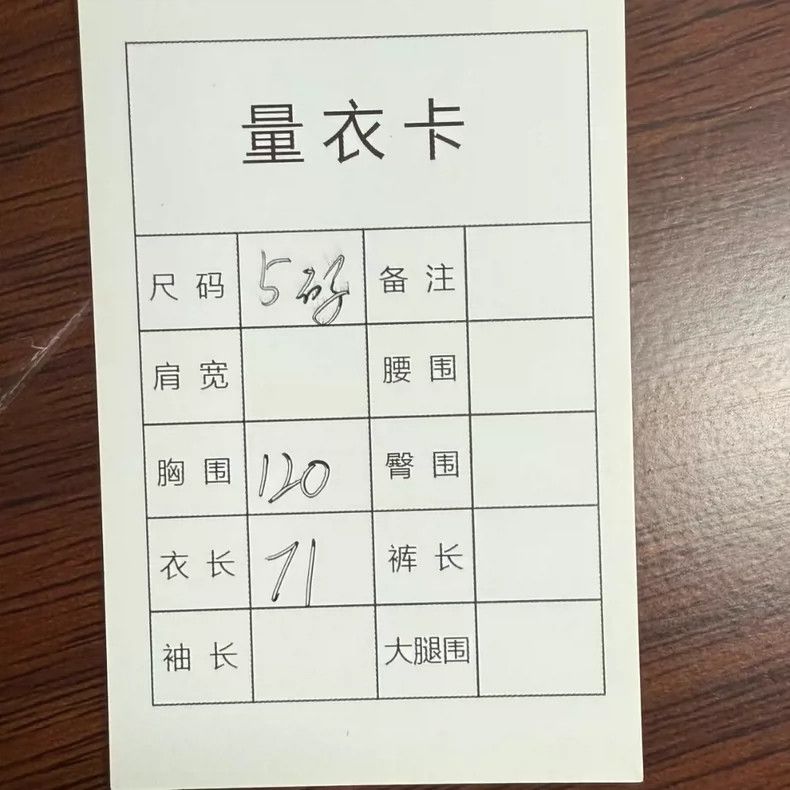 量衣卡
尺码 5码 备注
肩宽 腰围
胸围 120 臀围
衣长 71 裤长
袖长 大腿围